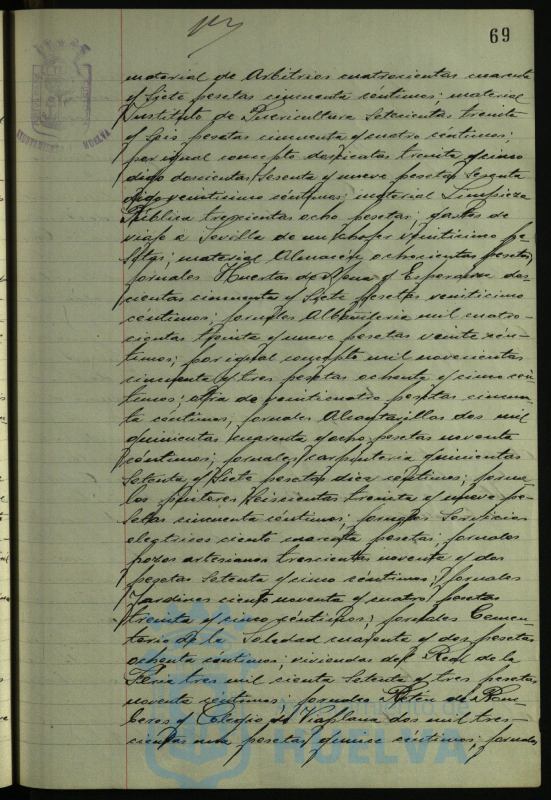 69
material de Arbitrios cuatrocientas cuarenta
y siete pesetas cincuenta centimos; material
Instituto de Puericultura Setecientas treinta
y seis pesetas cincuenta y cuatro centimos;
por igual concepto doscientas treinta y cinco
digo doscientas sesenta y nueve pesetas sesenta
digo veinticinco céntimos; material Limpieza
Pública trescientas ocho pesetas; gastos de
viaje a Sevilla de un chofer veinticinco pe-
setas; material Almacén ochocientas pesetas,
jornales Huertas de Mena y Esperanza dos-
cientas cincuenta y siete pesetas veinticinco
céntimos; jornales Albañileria mil cuatro-
cientas treinta y nueve pesetas veinte cén-
timos; por igual concepto mil novecientas
cincuenta y tres pesetas ochenta y cinco cén-
timos; otra de veinticuatro pesetas cincuen-
ta céntimos, jornales Alcantarillas dos mil
quinientas cuarenta y ocho pesetas noventa
céntimos; jornales carpinteria quinientas
setenta y siete pesetas diez centimos; jorna
les pintores seiscientas treinta y nueve pe-
setas cincuenta céntimos; jornales Servicios
electricos ciento cuarenta pesetas, jornales
pozos artesianos trescientas noventa y dos
pesetas setenta y cinco céntimos; jornales
Jardines ciento noventa y cuatro pesetas
treinta y cinco céntimos; jornales Cemen-
terio de la Soledad cuarenta y dos pesetas
ochenta centimos; viviendas del Real de la
Feria tres mil ciento setenta y tres pesetas
noventa céntimos; jornales Retén de Bom-
beros y Colegio de Viaplana dos mil tres-
cientas una pesetas quince céntimos; jornales
AYUNTAMIENTO HUELVA
Ayuntamiento de
HUELVA